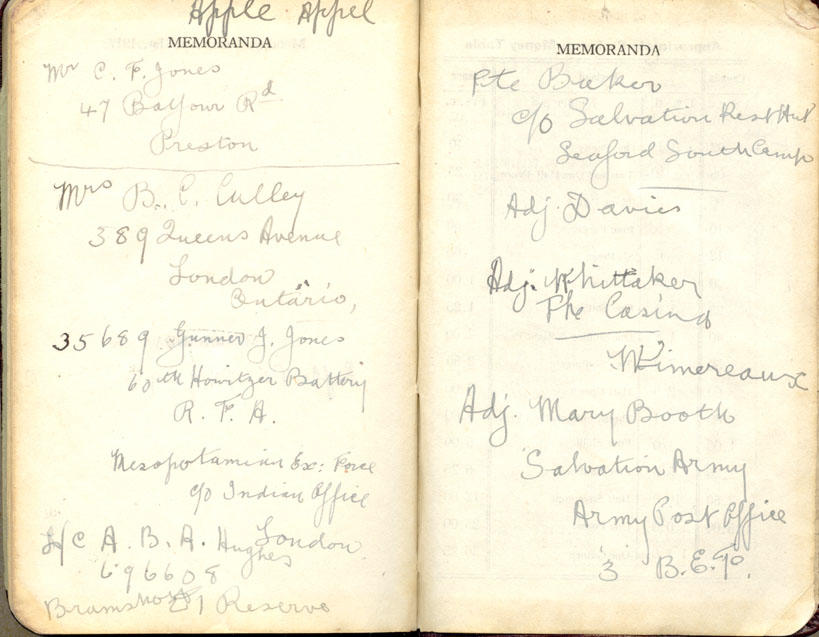 Apple Appel
MEMORANDA
Mr C. F. Jones
47 Balfour Rd
Preston
Mrs B. C. Culley
389 Queens Avenue
London
Ontario,
35689 Gunner J. Jones
60th Howitzer Battery
R. F. A.
Mesopotamian Ex: Force
c/o Indian Office
London
L/C A. B. A. Hughes
696608
Bramshott 21 Reserve
MEMORANDA
Pte Baker
c/o Salvation Rest Hut
Seaford South Camp
Adj. Davies
Adj. Whittaker
The Casino
Wimereaux
Adj. Mary Booth
Salvation Army
Army Post Office
3 B.E.F.